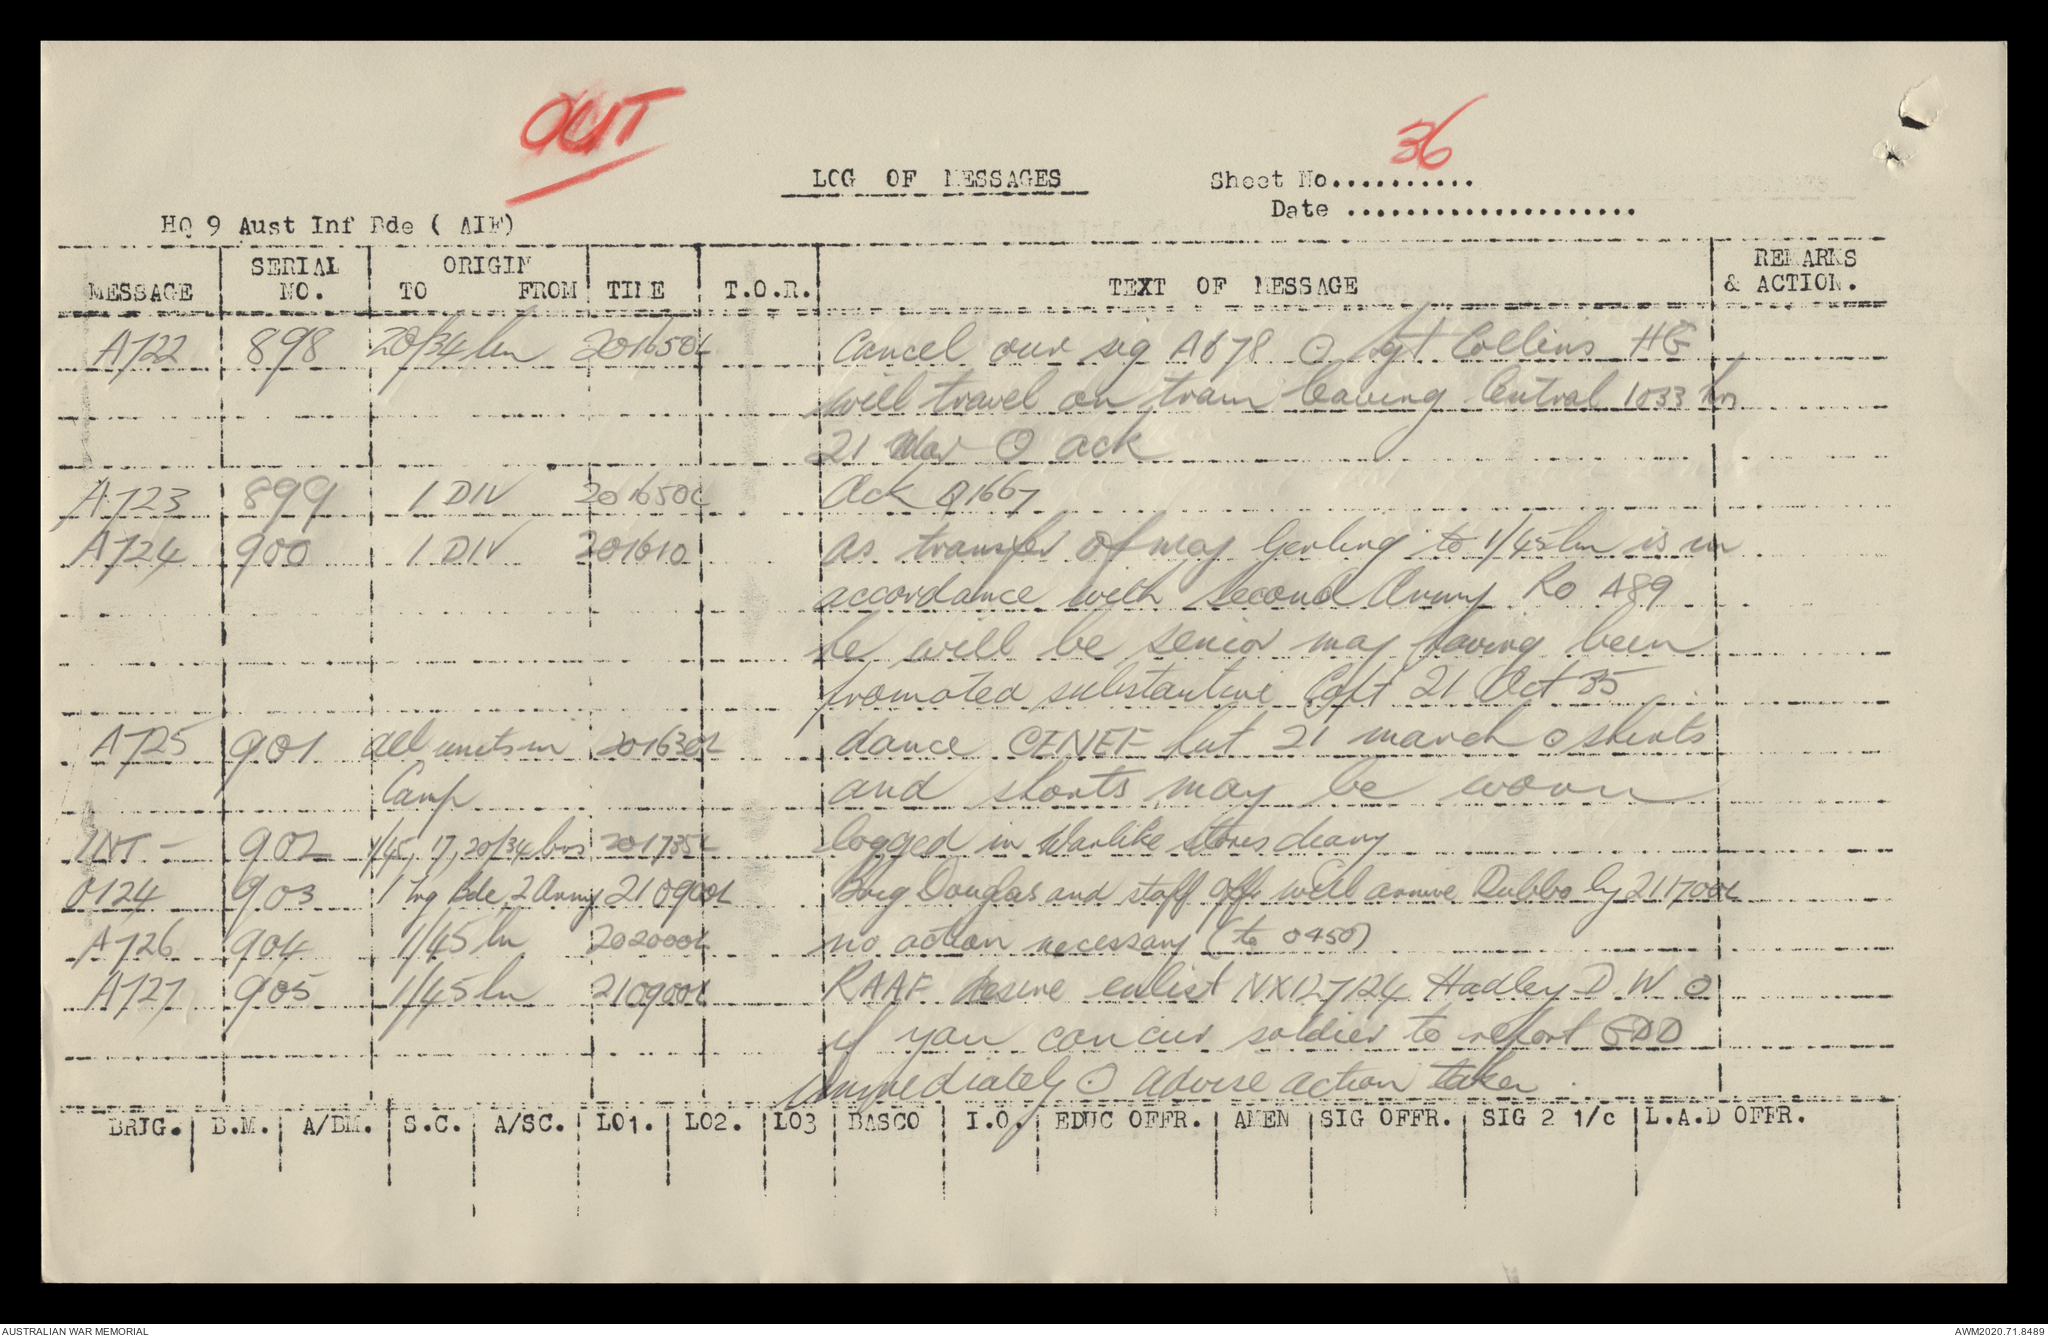 OUT
36
LOG OF MESSAGES Sheet No...........
Date ....................
HQ 9 Aust Inf Bde ( AIF)
MESSAGE SERIAL NO. ORIGIN TO FROM TIME T.O.R. TEXT OF MESSAGE REMARKS & ACTION.
A722 898 20/34 bn 201650L Cancel our sig A678 O Sgt Collins HG
will travel on train leaving Central 1033 hrs
21 Mar O ack
A723 899 1 DIV 201650L Ack Q1667
A724 900 1 DIV 201610 as transfer of maj Gerling to 1/45 bn is in
accordance with Second Army RO A89
he will be senior maj having been
promoted substantive Capt 21 Oct 35
A725 901 all units in 201630L dance CENEF hut 21 march O shirts
Camp and shorts may be worn
INT - 902 1/45, 17, 20/34 bns 201735L logged in Warlike Stores diary
O124 903 1 Trg Bde, 2 Army 210900L Brig Douglas and staff offr will arrive Dubbo by 211700L
A726 904 1/45 bn 202000L no action necessary (to 0450)
A727 905 1/45 bn 210900L RAAF desire enlist NX127124 Hadley D. W O
if you concur soldier to report GDD
immediately O advise action taken
BRIG. B.M. A/BM. S.C. A/SC. LO1. LO2. LO3 BASCO I.O. EDUC OFFR. AMEN SIG OFFR. SIG 2 1/c L.A.D OFFR.
AUSTRALIAN WAR MEMORIAL AWM2020.71.8489